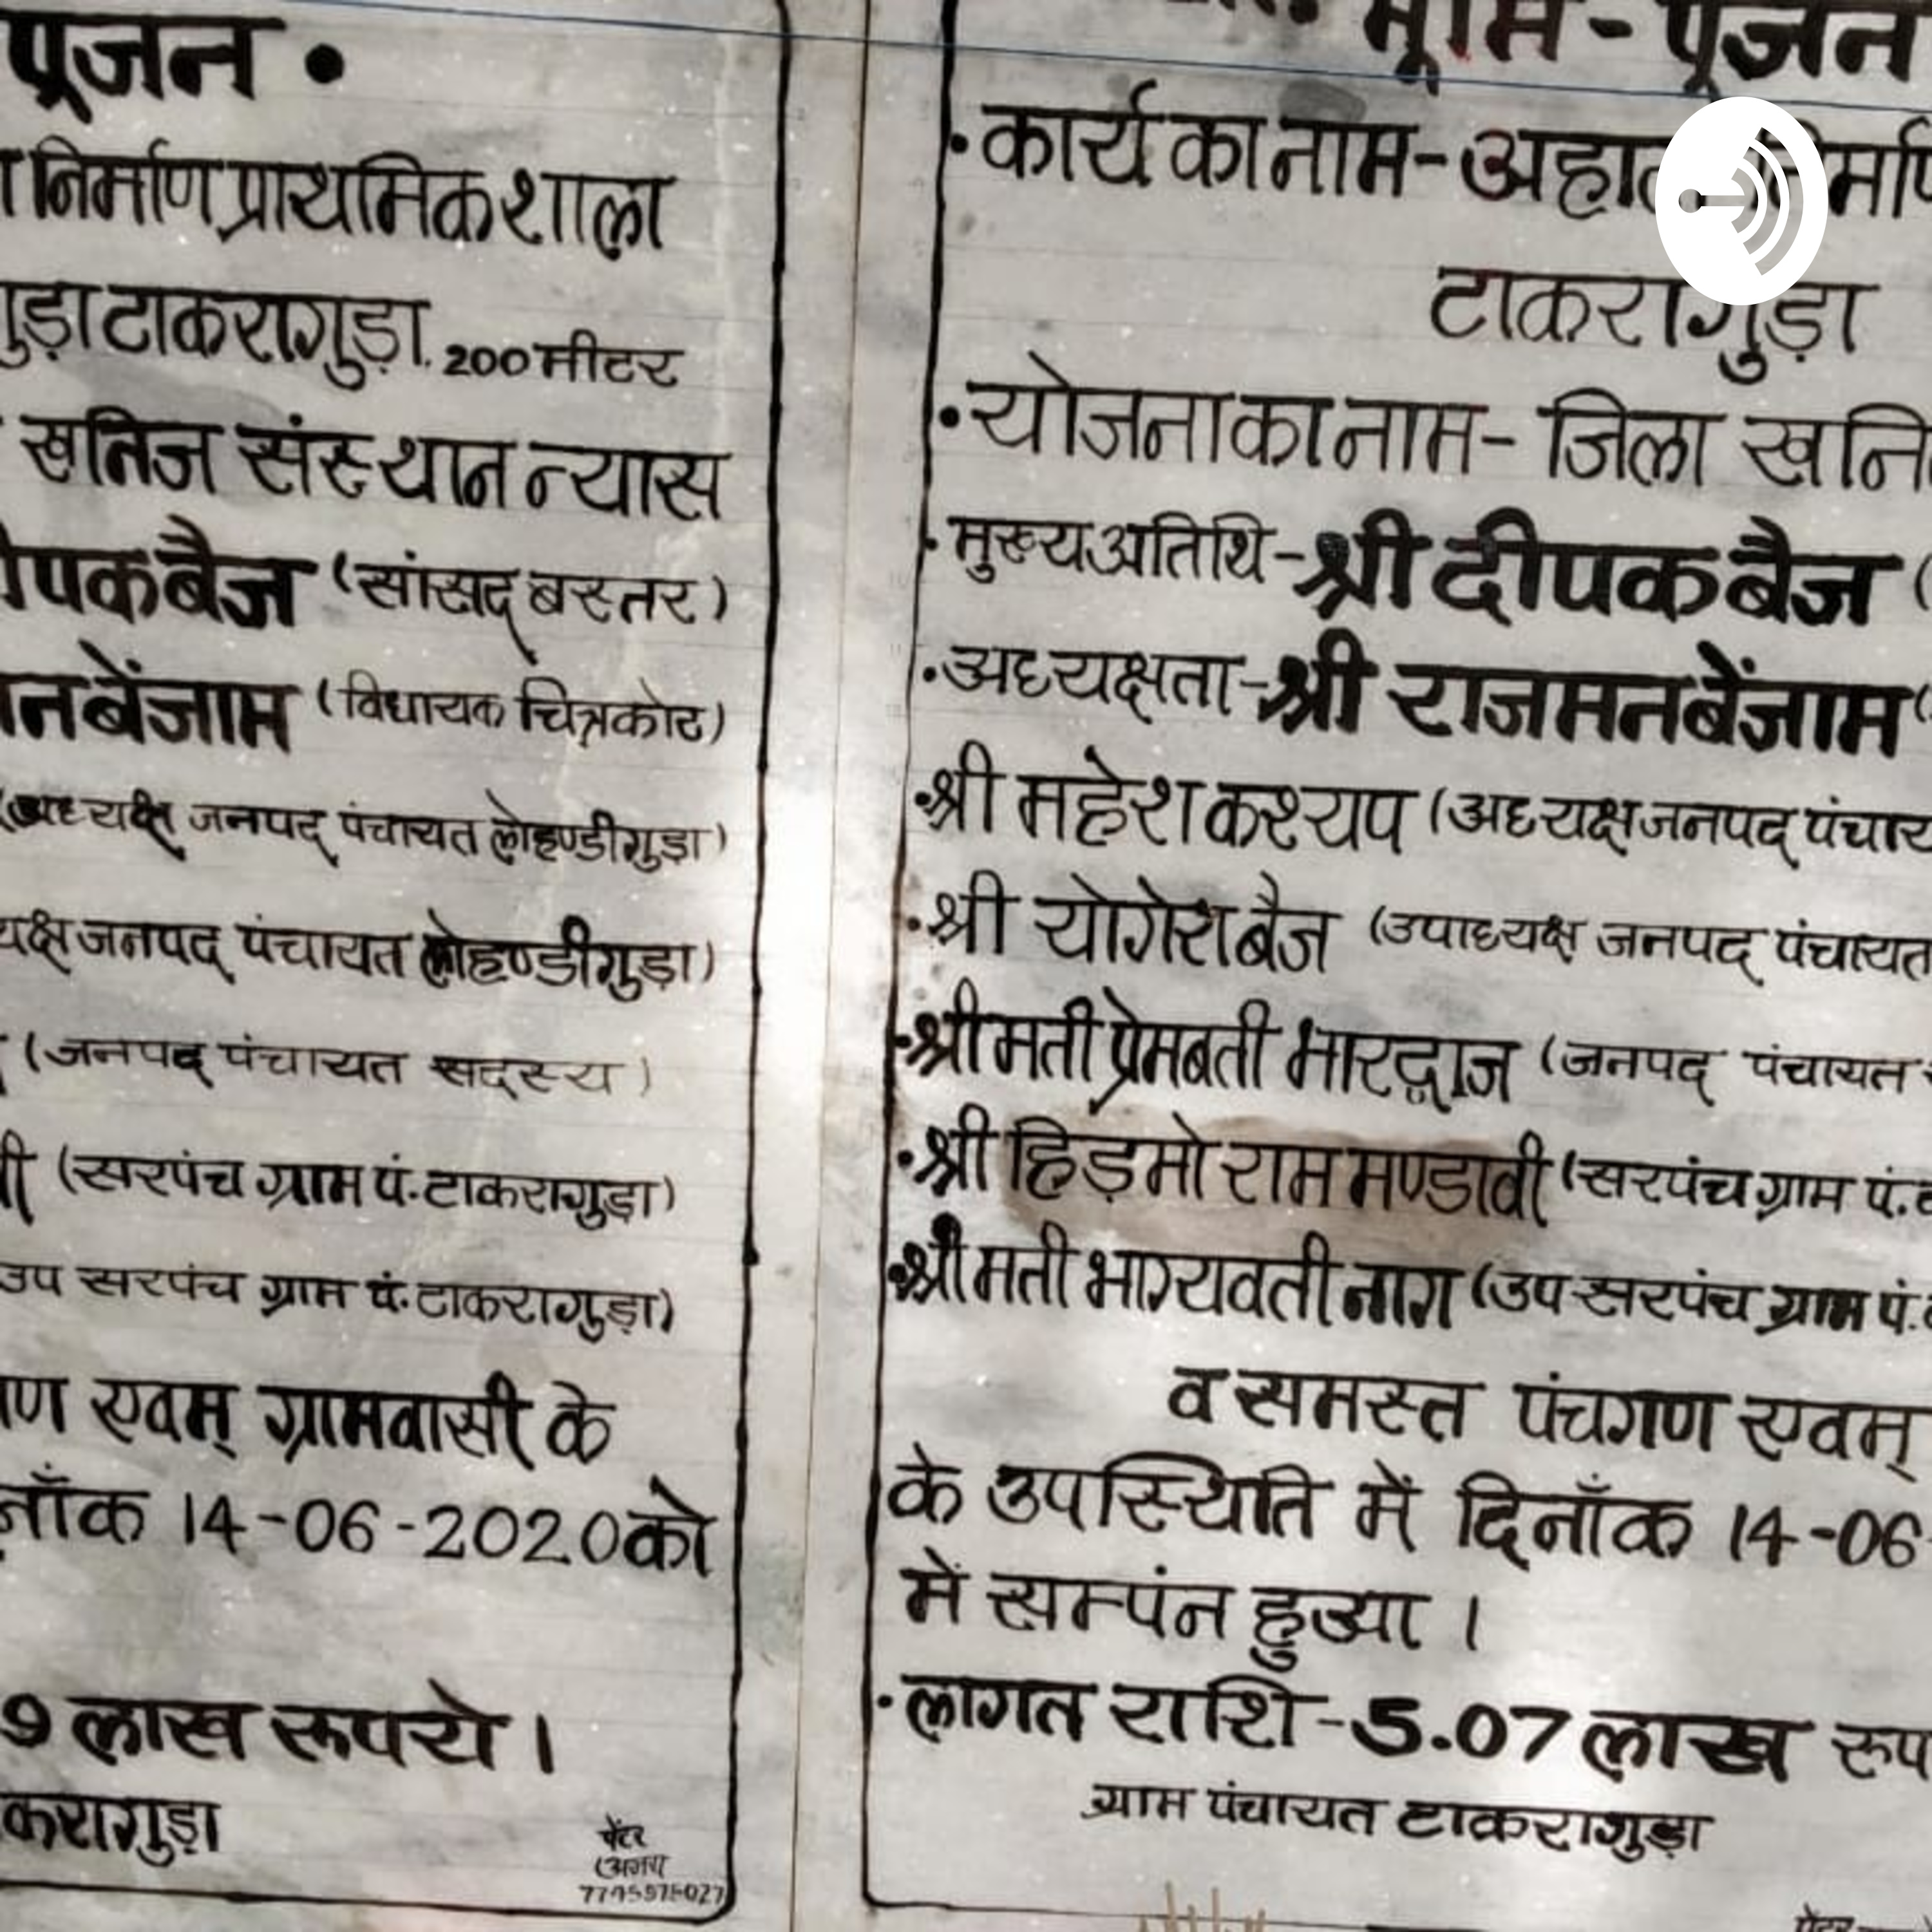 पूजन •
निर्माण प्राथमिक शाला
गुड़ा टाकरागुड़ा. 200 मीटर
खनिज संस्थान न्यास
दीपक बैज (सांसद बस्तर)
बेंजाम (विधायक चित्रकोट)
(अध्यक्ष जनपद् पंचायत लोहण्डीगुड़ा)
जनपद् पंचायत लोहण्डीगुड़ा)
(जनपद् पंचायत सद्स्य)
(सरपंच ग्राम पं. टाकरागुड़ा)
उप सरपंच ग्राम पं. टाकरागुड़ा)
एवम् ग्रामवासी के
14-06-2020 को
लाख रूपये।
करागुड़ा
पेंटर
भूमि - पूजन
• कार्य का नाम - अहाता निर्माण
टाकरागुड़ा
• योजना का नाम - जिला खनि
• मुख्य अतिथि - श्री दीपक बैज (
• अध्यक्षता - श्री राजमन बेंजाम (
• श्री महेश कश्यप (अध्यक्ष जनपद् पंचाय
• श्री योगेश बैज (उपाध्यक्ष जनपद् पंचायत
• श्रीमती प्रेमबती भारद्वाज (जनपद् पंचायत
• श्री हिड़मो राम मण्डावी (सरपंच ग्राम पं.
• श्रीमती भाग्यवती नाग (उप सरपंच ग्राम पं.
व समस्त पंचगण एवम्
के उपस्थिति में दिनाँक 14-06
में सम्पंन हुआ ।
• लागत राशि - 5.07 लाख रूप
ग्राम पंचायत टाकरागुड़ा